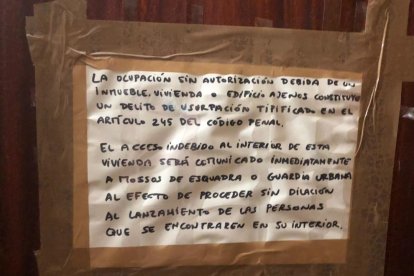 LA OCUPACIÓN SIN AUTORIZACIÓN DEBIDA DE UN
INMUEBLE, VIVIENDA O EDIFICIO AJENOS CONSTITUYE
UN DELITO DE USURPACIÓN TIPIFICADO EN EL
ARTÍCULO 245 DEL CÓDIGO PENAL.
EL ACCESO INDEBIDO AL INTERIOR DE ESTA
VIVIENDA SERÁ COMUNICADO INMEDIATAMENTE
A MOSSOS DE ESQUADRA O GUARDIA URBANA
AL EFECTO DE PROCEDER SIN DILACIÓN
AL LANZAMIENTO DE LAS PERSONAS
QUE SE ENCONTRAREN EN SU INTERIOR.